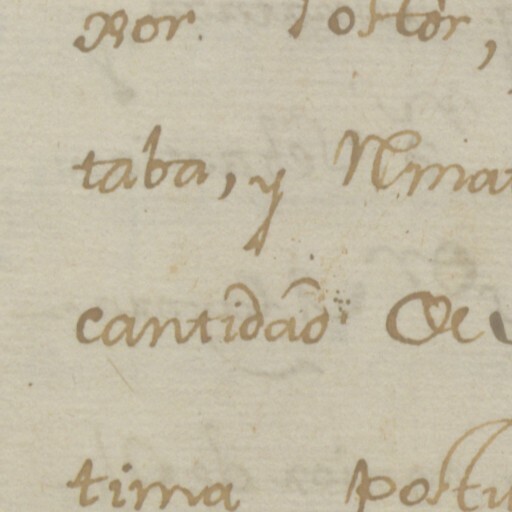 Postor,
taba, y Rema
cantidad de
tima postu